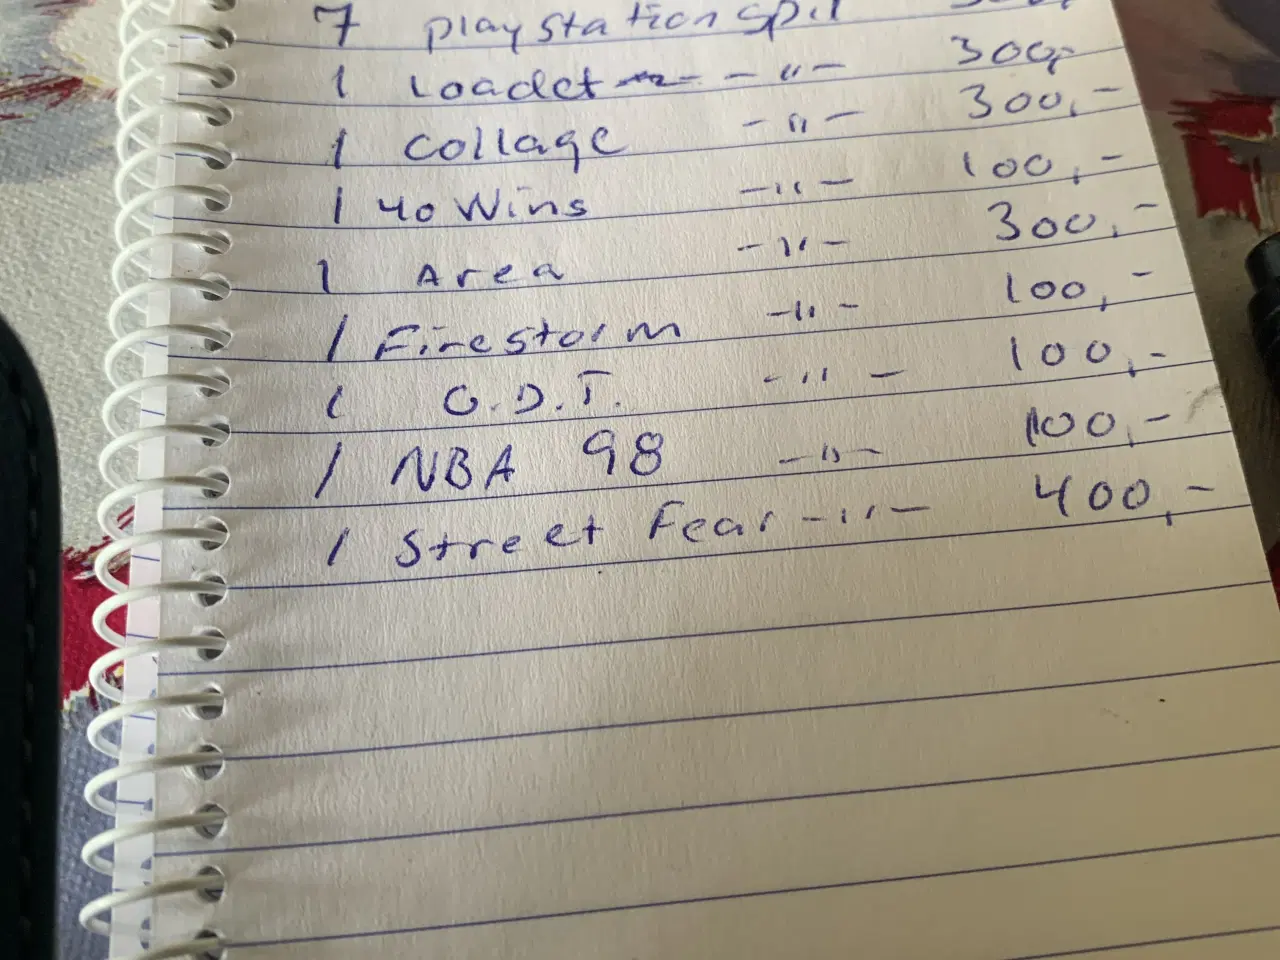 7 playstation spil
1 Loadet - " - 300,-
1 Collage - " - 300,-
1 40 Wins - " - 100,-
1 Area - " - 300,-
1 Firestorm - " - 100,-
1 O.D.T. - " - 100,-
1 NBA 98 - " - 100,-
1 Street Fear - " - 400,-